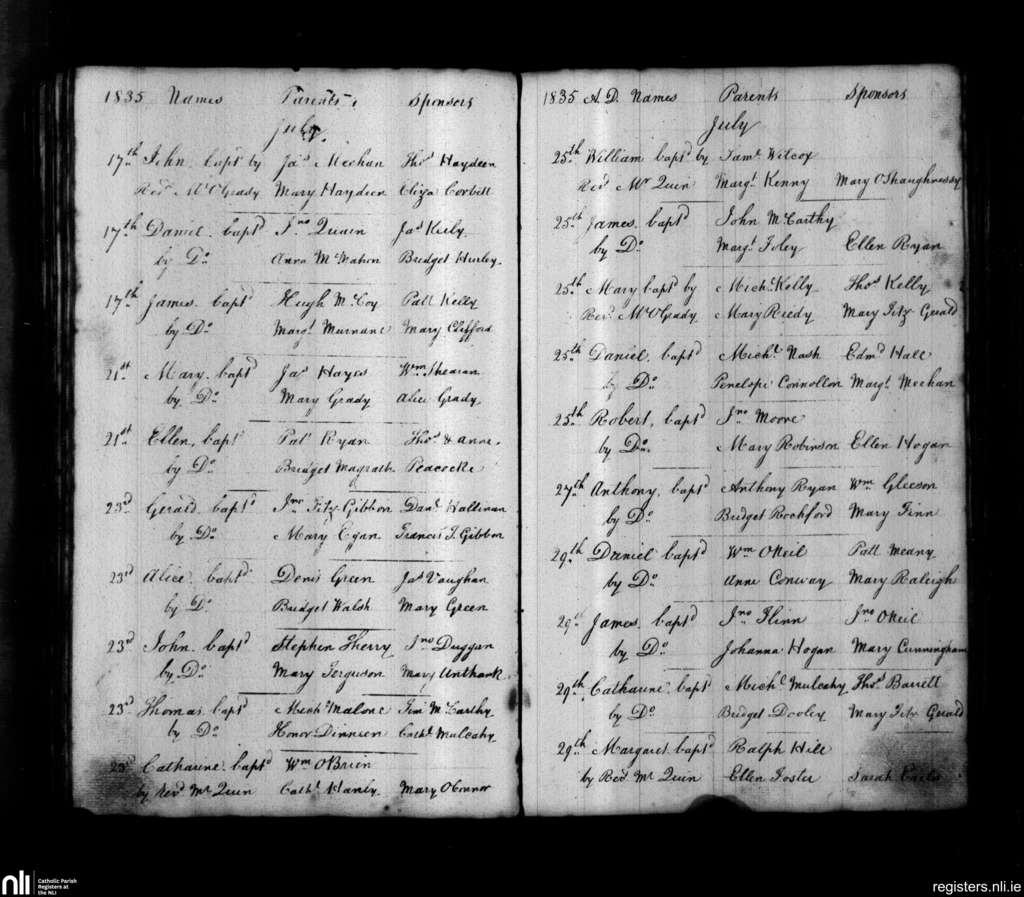 1835 Names Parents Sponsors
July
17th John bapt by Jas Meehan Thos Haydeen
Revd Mr OGrady Mary Haydeen Eliza Corbett
17th Daniel baptd Jno Quain Jas Kiely
by Do Anna McMahon Bridget Hurley
17th James baptd Hugh McCoy Patt Kelly
by Do Margt Murnane Mary Clifford
21st Mary baptd Jas Hayes Wm Shearan
by Do Mary Grady Alice Grady
21st Ellen baptd Pat Ryan Thos & anne
by Do Bridget Magrath Peacocke
23rd Gerald baptd Jno Fitz Gibbon Danl Hallinan
by Do Mary Egan Frances F. Gibbon
23d Alice baptd Denis Green Jas Vaughan
by Do Bridget Walsh Mary Green
23rd John baptd Stephen Sherry Jno Duggan
by Do Mary Ferguson Mary Unthank
23d Thomas baptd Michl Malone Tim McCarthy
by Do Honor Dinneen Cathe Mulcahy
23d Catharine baptd Wm OBrien
by Revd Mr Quin Cathe Hanly Mary OConnor
1835 A.D. Names Parents Sponsors
July
25th William baptd by Saml Wilcox
Revd Mr Quin Margt Kenny Mary OShaughnessy
25th James baptd John McCarthy
by Do Margt Foley Ellen Ryan
25th Mary baptd by Michl Kelly Thos Kelly
Revd Mr OGrady Mary Reedy Mary Fitz Gerald
25th Daniel baptd Michl Nash Edmd Hall
by Do Penelope Connollon Margt Meehan
25th Robert baptd Jno Moore
by Do Mary Robinson Ellen Hogan
27th Anthony baptd Anthony Ryan Wm Gleeson
by Do Bridget Rochford Mary Finn
29th Daniel baptd Wm ONeil Patt Meany
by Do Anne Conway Mary Raleigh
29th James baptd Jno Flinn Jno ONeil
by Do Johanna Hogan Mary Cunningham
29th Catharine baptd Michl Mulcahy Thos Barrett
by Do Bridget Dooley Mary Fitz Gerald
29th Margaret baptd Ralph Hill
by Revd Mr Quin Ellen Foster Sarah
nli Catholic Parish Registers at the NLI
registers.nli.ie